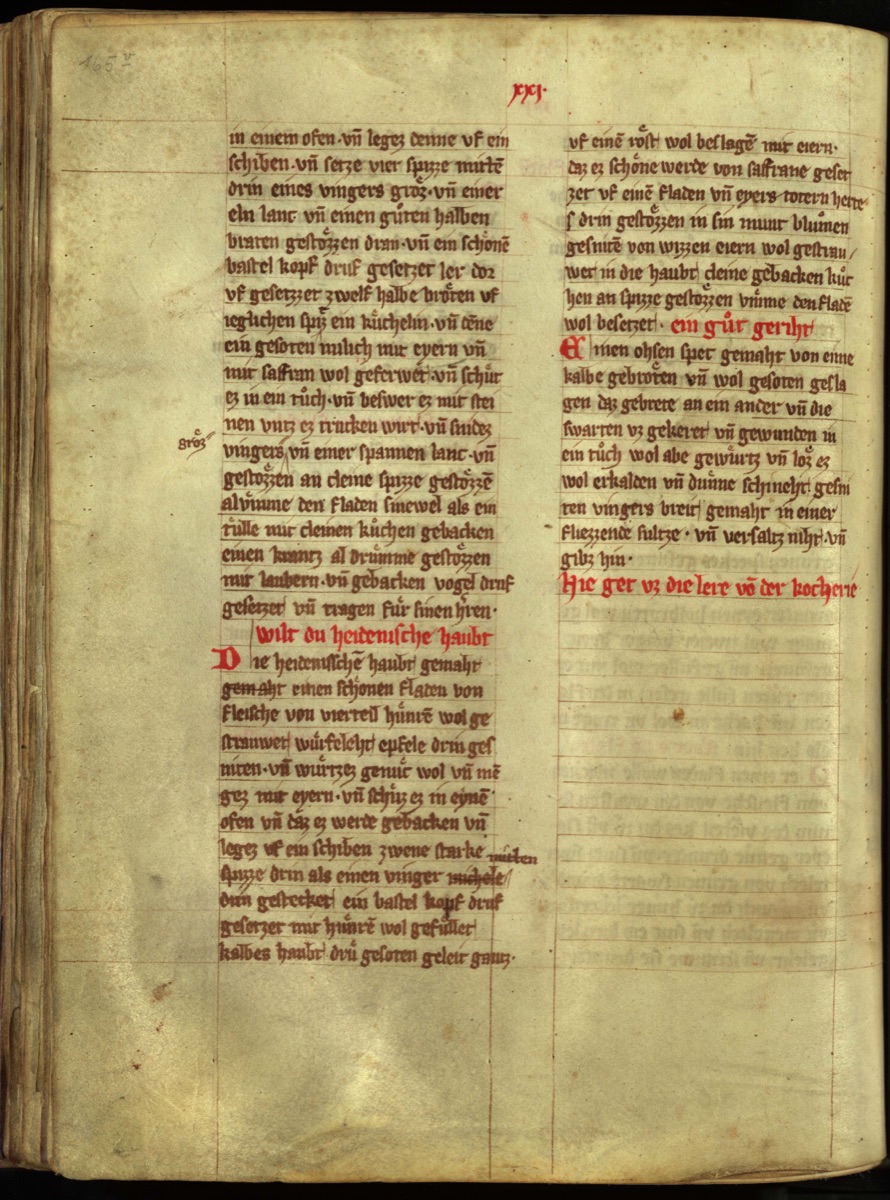 165v
xxj.
in einem ofen · vn̄ legez denne vf ein
schiben · vn̄ setze vier spizze mitē
drin eines vingers groͤz · vn̄ einer
eln lanc vn̄ einen guͦten halben
braten gestoͤzzen dran · vn̄ ein schoͤnē
bastel kopf druf gesetzet ler dor
vf gesetzzet zwelf halbe broͤten vf
ieglichen spiz ein kuͤchelin · vn̄ dēne
ein gesoten milich mit eyern vn̄
mit saffran wol geferwet · vn̄ schuͤt
ez in ein tuͦch · vn̄ beswer ez mit stei
nen vntz ez trucken wirt · vn̄ snidez
groͤz
vingers vn̄ einer spannen lanc · vn̄
gestoͤzzen an cleine spizze gestoͤzzē
alvmme den fladen sinewel als ein
ruͤlle mit cleinen kuͦchen gebacken
einen krantz al druͤmme gestoͤzzen
mit laubern · vn̄ gebacken vogel druf
gesetzet vn̄ tragen fuͤr sinen h'ren ·
wilt du heidenische haubt
Die heidenisschē haubt gemaht
gemaht einen schoͤnen fladen von
fleische von vierteil huͤnrē wol ge
strauwet wuͤrfeleht epfele drin ges
niten · vn̄ wuͤrtzez genuͦc wol vn̄ mē
gez mit eyern · vn̄ schuͤz ez in eynē
ofen vn̄ daz ez werde gebacken vn̄
legez vf ein schiben zwene starke mitten
spizze drin als einen vinger michele
drin gestecket ein bastel kopf druf
gesetzet mit huͤnrē wol gefuͤllet
kalbes haubt druͤ gesoten geleit gantz ·
vf einē roͤst wol beslagē mit eiern ·
daz ez schoͤne werde von saffrane geset
zet vf einē fladen vn̄ eyers totern herte
s drin gestoͤzzen in sin munt bluͦmen
gesnitē von wizzen eiern wol gestrau
wet in die haubt cleine gebacken kuͦc
hen an spizze gestoͤzzen vmme den fladē
wol besetzet · ein guͦt geriht
Einen ohsen spet gemaht von eime
kalbe gebroͤten vn̄ wol gesoten gesla
gen daz gebrete an ein ander vn̄ die
swarten vz gekeret vn̄ gewunden in
ein tuͦch wol abe gewuͤrtz vn̄ loz ez
wol erkalden vn̄ duͤnne schineht gesni
ten vingers breit gemaht in einer
fliezzende sultze · vn̄ versaltz niht · vn̄
gibz hin ·
Hie get vz die lere vō der kocherie